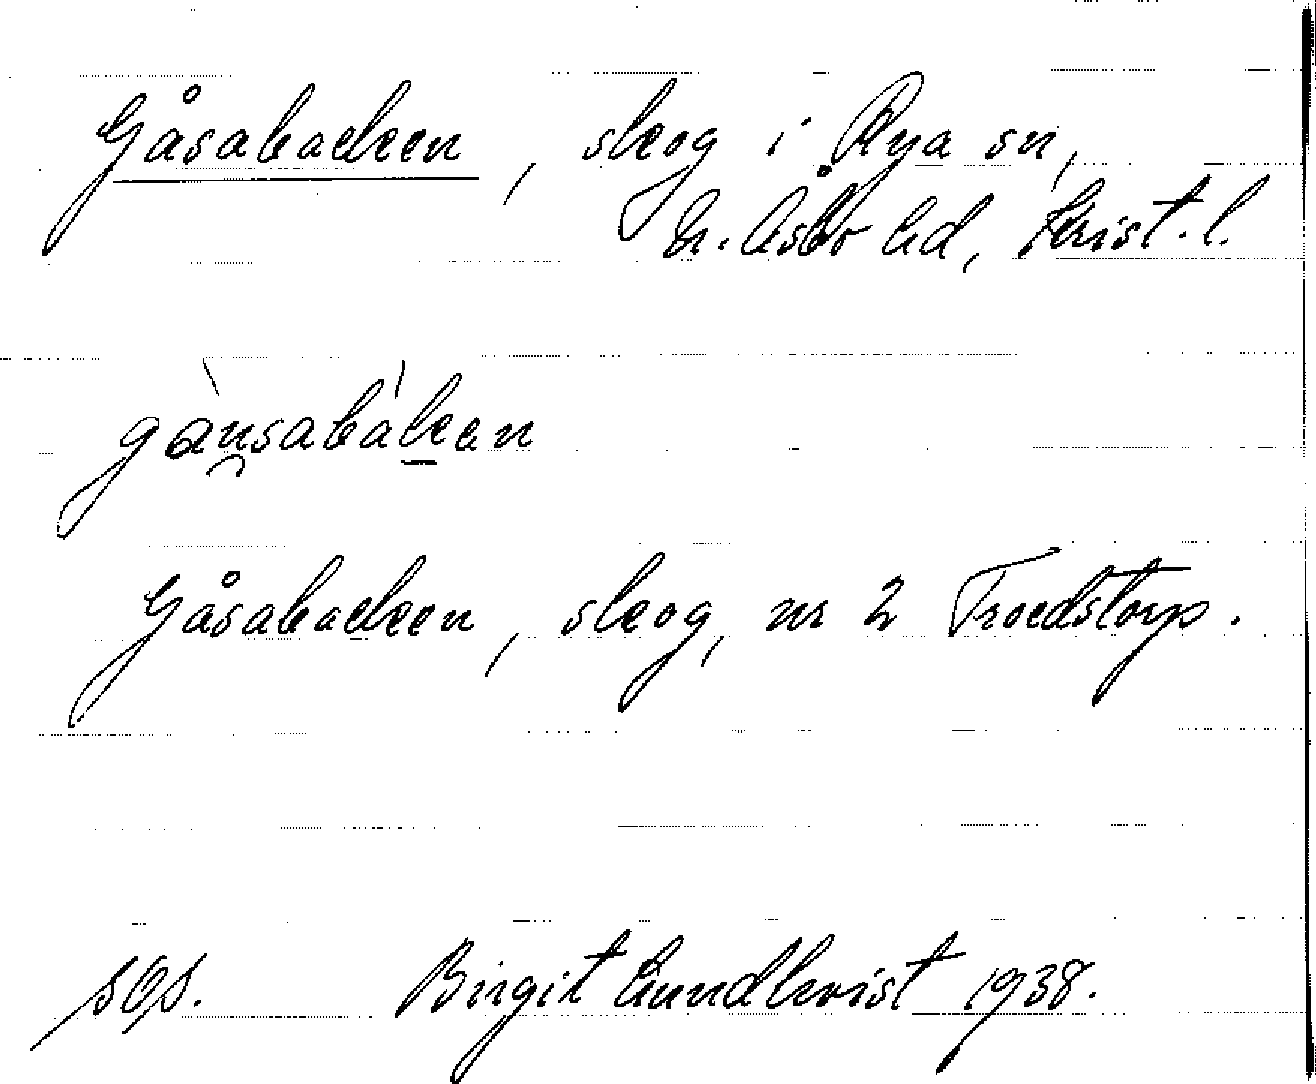 Gåsabacken, skog i Rya sn,
N. Åsbo hd, Krist. l.
gànsabáken
Gåsabacken, skog, nr 2 Troedstorp.
SOS. Birgit Lundkvist 1938.